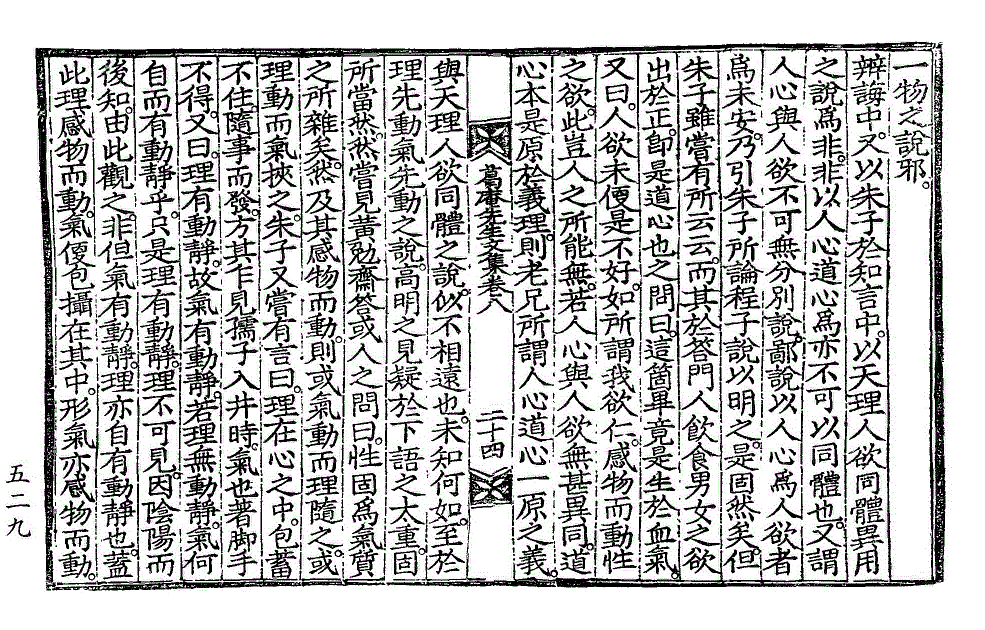 一物之說邪。
辨誨中。又以朱子於知言中。以天理人欲同體異用
之說爲非。非以人心道心爲亦不可以同體也。又謂
人心與人欲不可無分別說。鄙說以人心爲人欲者
爲未安。乃引朱子所論程子說以明之。是固然矣。但
朱子雖嘗有所云云。而其於答門人飮食男女之欲
出於正。卽是道心也之問曰。這箇畢竟是生於血氣。
又曰。人欲未便是不好。如所謂我欲仁。感物而動性
之欲。此豈人之所能無。若人心與人欲無甚異同。道
心本是原於義理。則老兄所謂人心道心一原之義
葛庵先生文集卷八
二十四
與天理人欲同體之說。似不相遠也。未知何如。至於
理先動氣先動之說。高明之見疑於下語之太重。固
所當然。然嘗見黃勉齋答或人之問曰。性固爲氣質
之所雜矣。然及其感物而動。則或氣動而理隨之。或
理動而氣挾之。朱子又嘗有言曰。理在心之中。包蓄
不住。隨事而發。方其乍見孺子入井時。氣也著脚手
不得。又曰。理有動靜。故氣有動靜。若理無動靜。氣何
自而有動靜乎。只是理有動靜。理不可見。因陰陽而
後知。由此觀之。非但氣有動靜。理亦自有動靜也。蓋
此理感物而動。氣便包攝在其中。形氣亦感物而動。
五二九